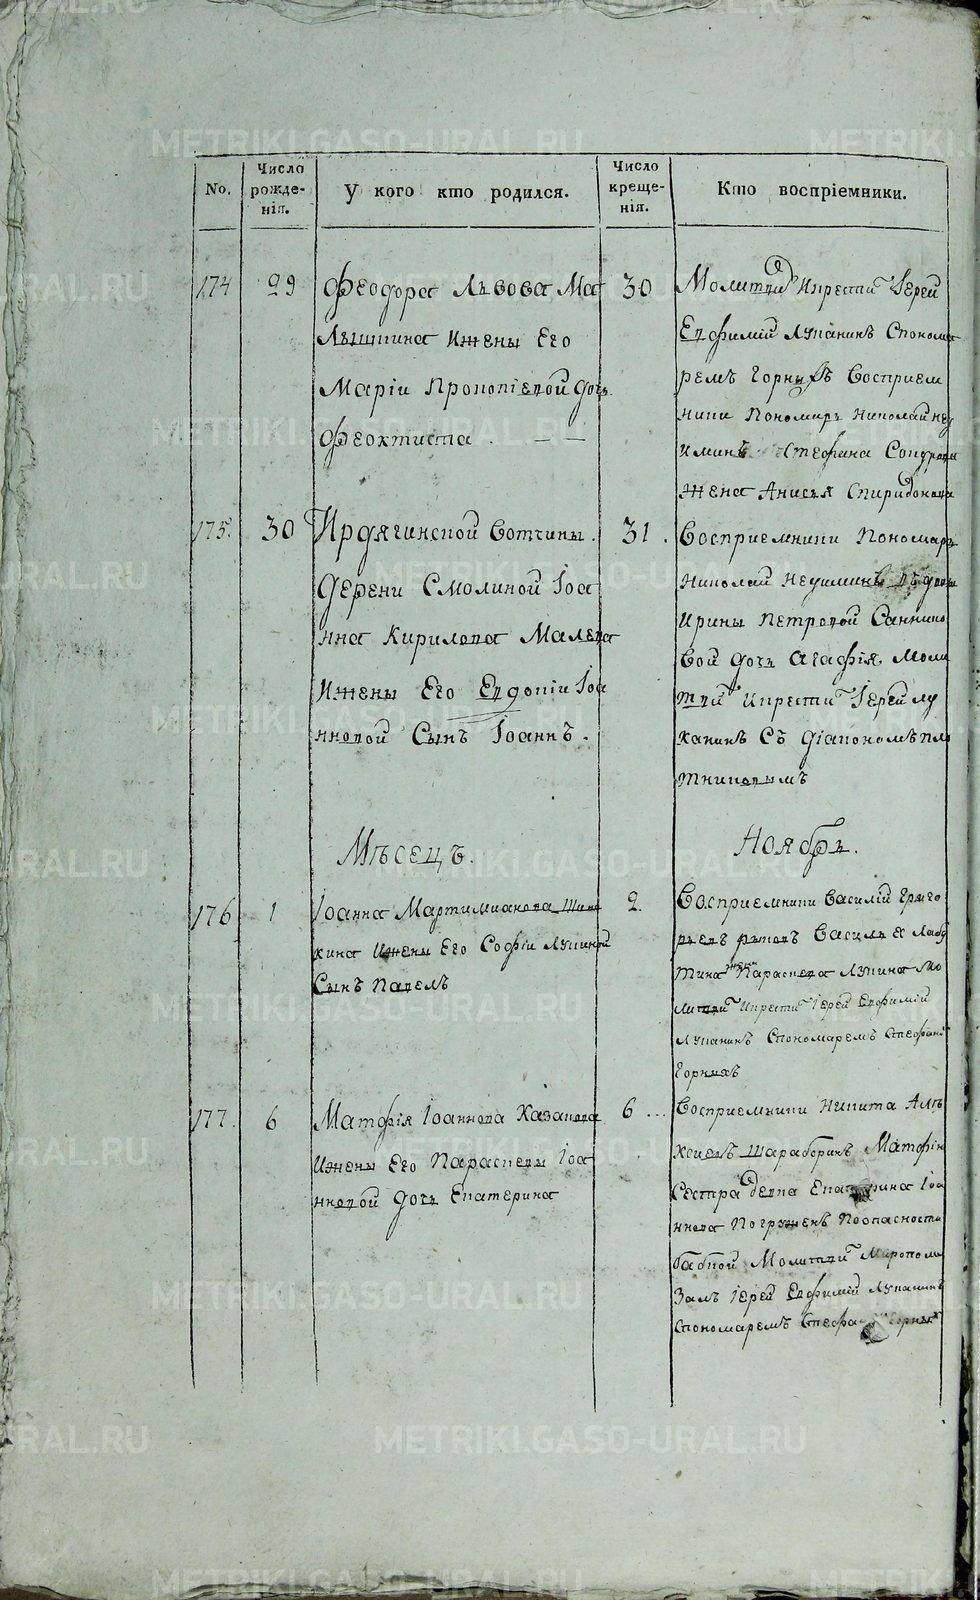 METRIKI.GASO-URAL.RU
No.
Число рожде-нія.
У кого кто родился.
Число креще-нія.
Кто воспріемники.
174
29
Феодора Львова Ма
Лышкина Ижены Его
Маріи Прокопіевой дочь
Феоктиста . — —
30
Молитвил Икрестил Іерей
Евфимій Луканинъ Спонома
ремъ Горныхъ Восприем
ники Пономарь Николай Неу
иминъ Стефана
Жена Анисья Спиридонова
175.
30
Ирдягинской Вотчины.
Дерени Смолиной Іоа
нна Кирилова Малева
Ижены Его Евдокіи Іоа
нновой Сынъ Іоаннъ.
31.
Восприемники Пономарь
Николай Неуиминъ вдовы
Ирины Петровой Саннико
вой дочь Агафія. Моли
твил Икрестил Іерей Лу
канинъ Съ Діакономъ Пло
тниковымъ
Мѣсецъ.
Ноябрь.
176
1
Іоанна Мартимианова
кина Ижены Его Софіи Лукиной
Сынъ Павелъ
2.
Восприемники Василій Григо
рьевъ Василья
тина жена Параскева Лукина Мо
литвил Икрестил Іерей Евфимій
Луканинъ Спономаремъ Стефаном
Горныхъ
177.
6
Матфія Іоаннова Казакова
Ижены Его Параскевы Іоа
нновой дочь Екатерина
6 ...
Восприемники Никита Але
ксиевъ Шараборинъ Матфіи
Сестра девка Екатерина Іоа
ннова Погруженъ Поопасности
бабкой Молитвил Миропома
залъ Іерей Евфимій Луканинъ
Спономаремъ Стефаном Горныхъ